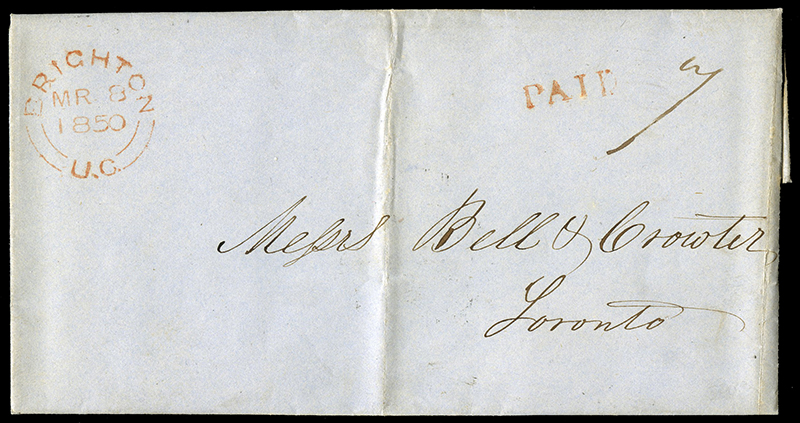 BRIGHTON
MR 8
1850
U.C.
PAID
7
Messrs Bell & Crowter
Toronto